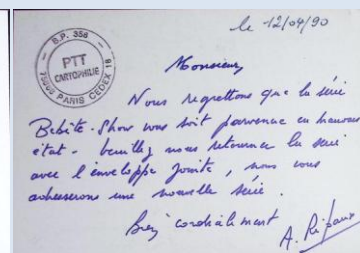 le 12/04/90
B.P. 358
PTT
CARTOPHILIE
PARIS CEDEX 18
Monsieur,
Nous regrettons que la série
Bébête-Show vous soit parvenue en mauvais
état - veuillez nous retourner la série
avec l'enveloppe jointe, nous vous
adresserons une nouvelle série.
Bien cordialement